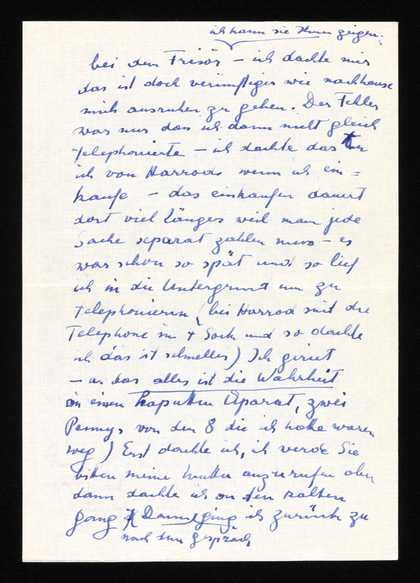 ich kann sie Ihnen zeigen.
bei den Frisör – ich dachte mir
das ist doch vernünftiger wie nachhause
mich ausruhen zu gehen. Der Fehler
war nur das ich dann nicht gleich
telephonierte – ich dachte das
ich von Harrods wenn ich ein=
kaufe – das einkaufen dauert
dort viel länger weil man jede
sache separat zahlen muss – es
war schon so spät und so lief
ich in die Untergrund um zu
telephonieren (bei Harrod sind die
Telephone im 4 Sock und so dachte
ich das ist schneller) Ich geriet
– das alles ist die Wahrheit
an einen kaputten Aparat, zwei
Pennys von den 8 die ich hatte waren
weg) Erst dachte ich, ich werde Sie
bitten meine Mutter anzurufen aber
dann dachte ich an den kalten
gang & Dann ging ich zurück zu
nach dem Gespräch